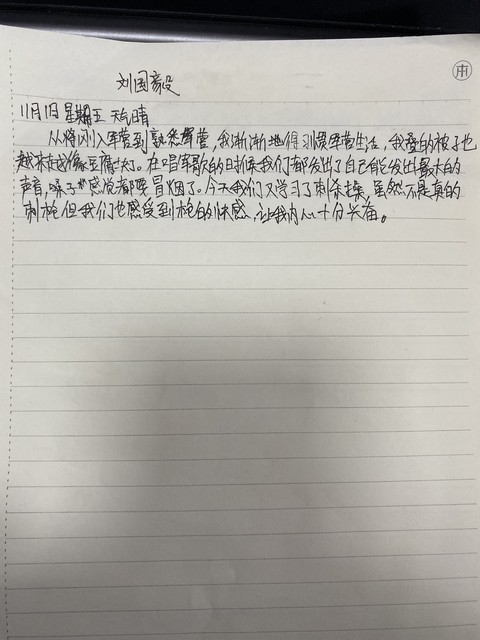 刘国豪
本
11月1日 星期五 天气晴
从将刚入军营到熟悉军营,我渐渐地得习惯军营生活,我叠的被子也
越来越像豆腐块了。在唱军歌的时候我们都发出了自己能发出最大的
声音,嗓子也感觉都要冒烟了。今天我们又学习了刺杀操,虽然不是真的
刺枪但我们也感受到枪的快感,让我内心十分兴奋。